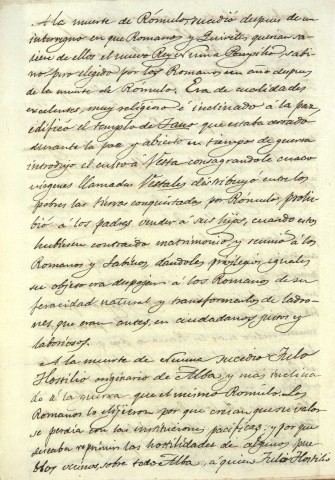 A la muerte de Rómulo, sucedió despues de un
interregno en que Romanos y Quirites querian sa-
liera de ellos el nuevo Rey Numa Pompilio, sabi-
no pero elegido por los Romanos un año despues
de la muerte de Rómulo. Era de cualidades
excelentes, muy religioso é inclinado á la paz
edificó el templo de Jano que estaba cerrado
durante la paz y abierto en tiempo de guerra
introdujo el culto á Vesta consagrandole cuatro
vírgenes llamadas Vestales distribuyó entre los
pobres las tierras conquistadas por Rómulo, prohi-
bió á los padres vender á sus hijos, cuando estos
hubiesen contraido matrimonio y reunió á los
Romanos y Sabinos, dandoles privilegios iguales
su objeto era despojar á los Romanos de su
feracidad natural y transformarlos de ladro-
nes que eran antes, en ciudadanos justos y
laboriosos.
A la muerte de Numa sucedio Tulo
Hostilio originario de Alba y mas inclina
do á la guerra que el mismo Romulo. Los
Romanos lo eligieron por que creian que su valor
se perdia con las instituciones pacificas, y por que
deseaba reprimir las hostilidades de algunos pue
blos vecinos, sobre todo Alba, á quien Tulio Hostilio